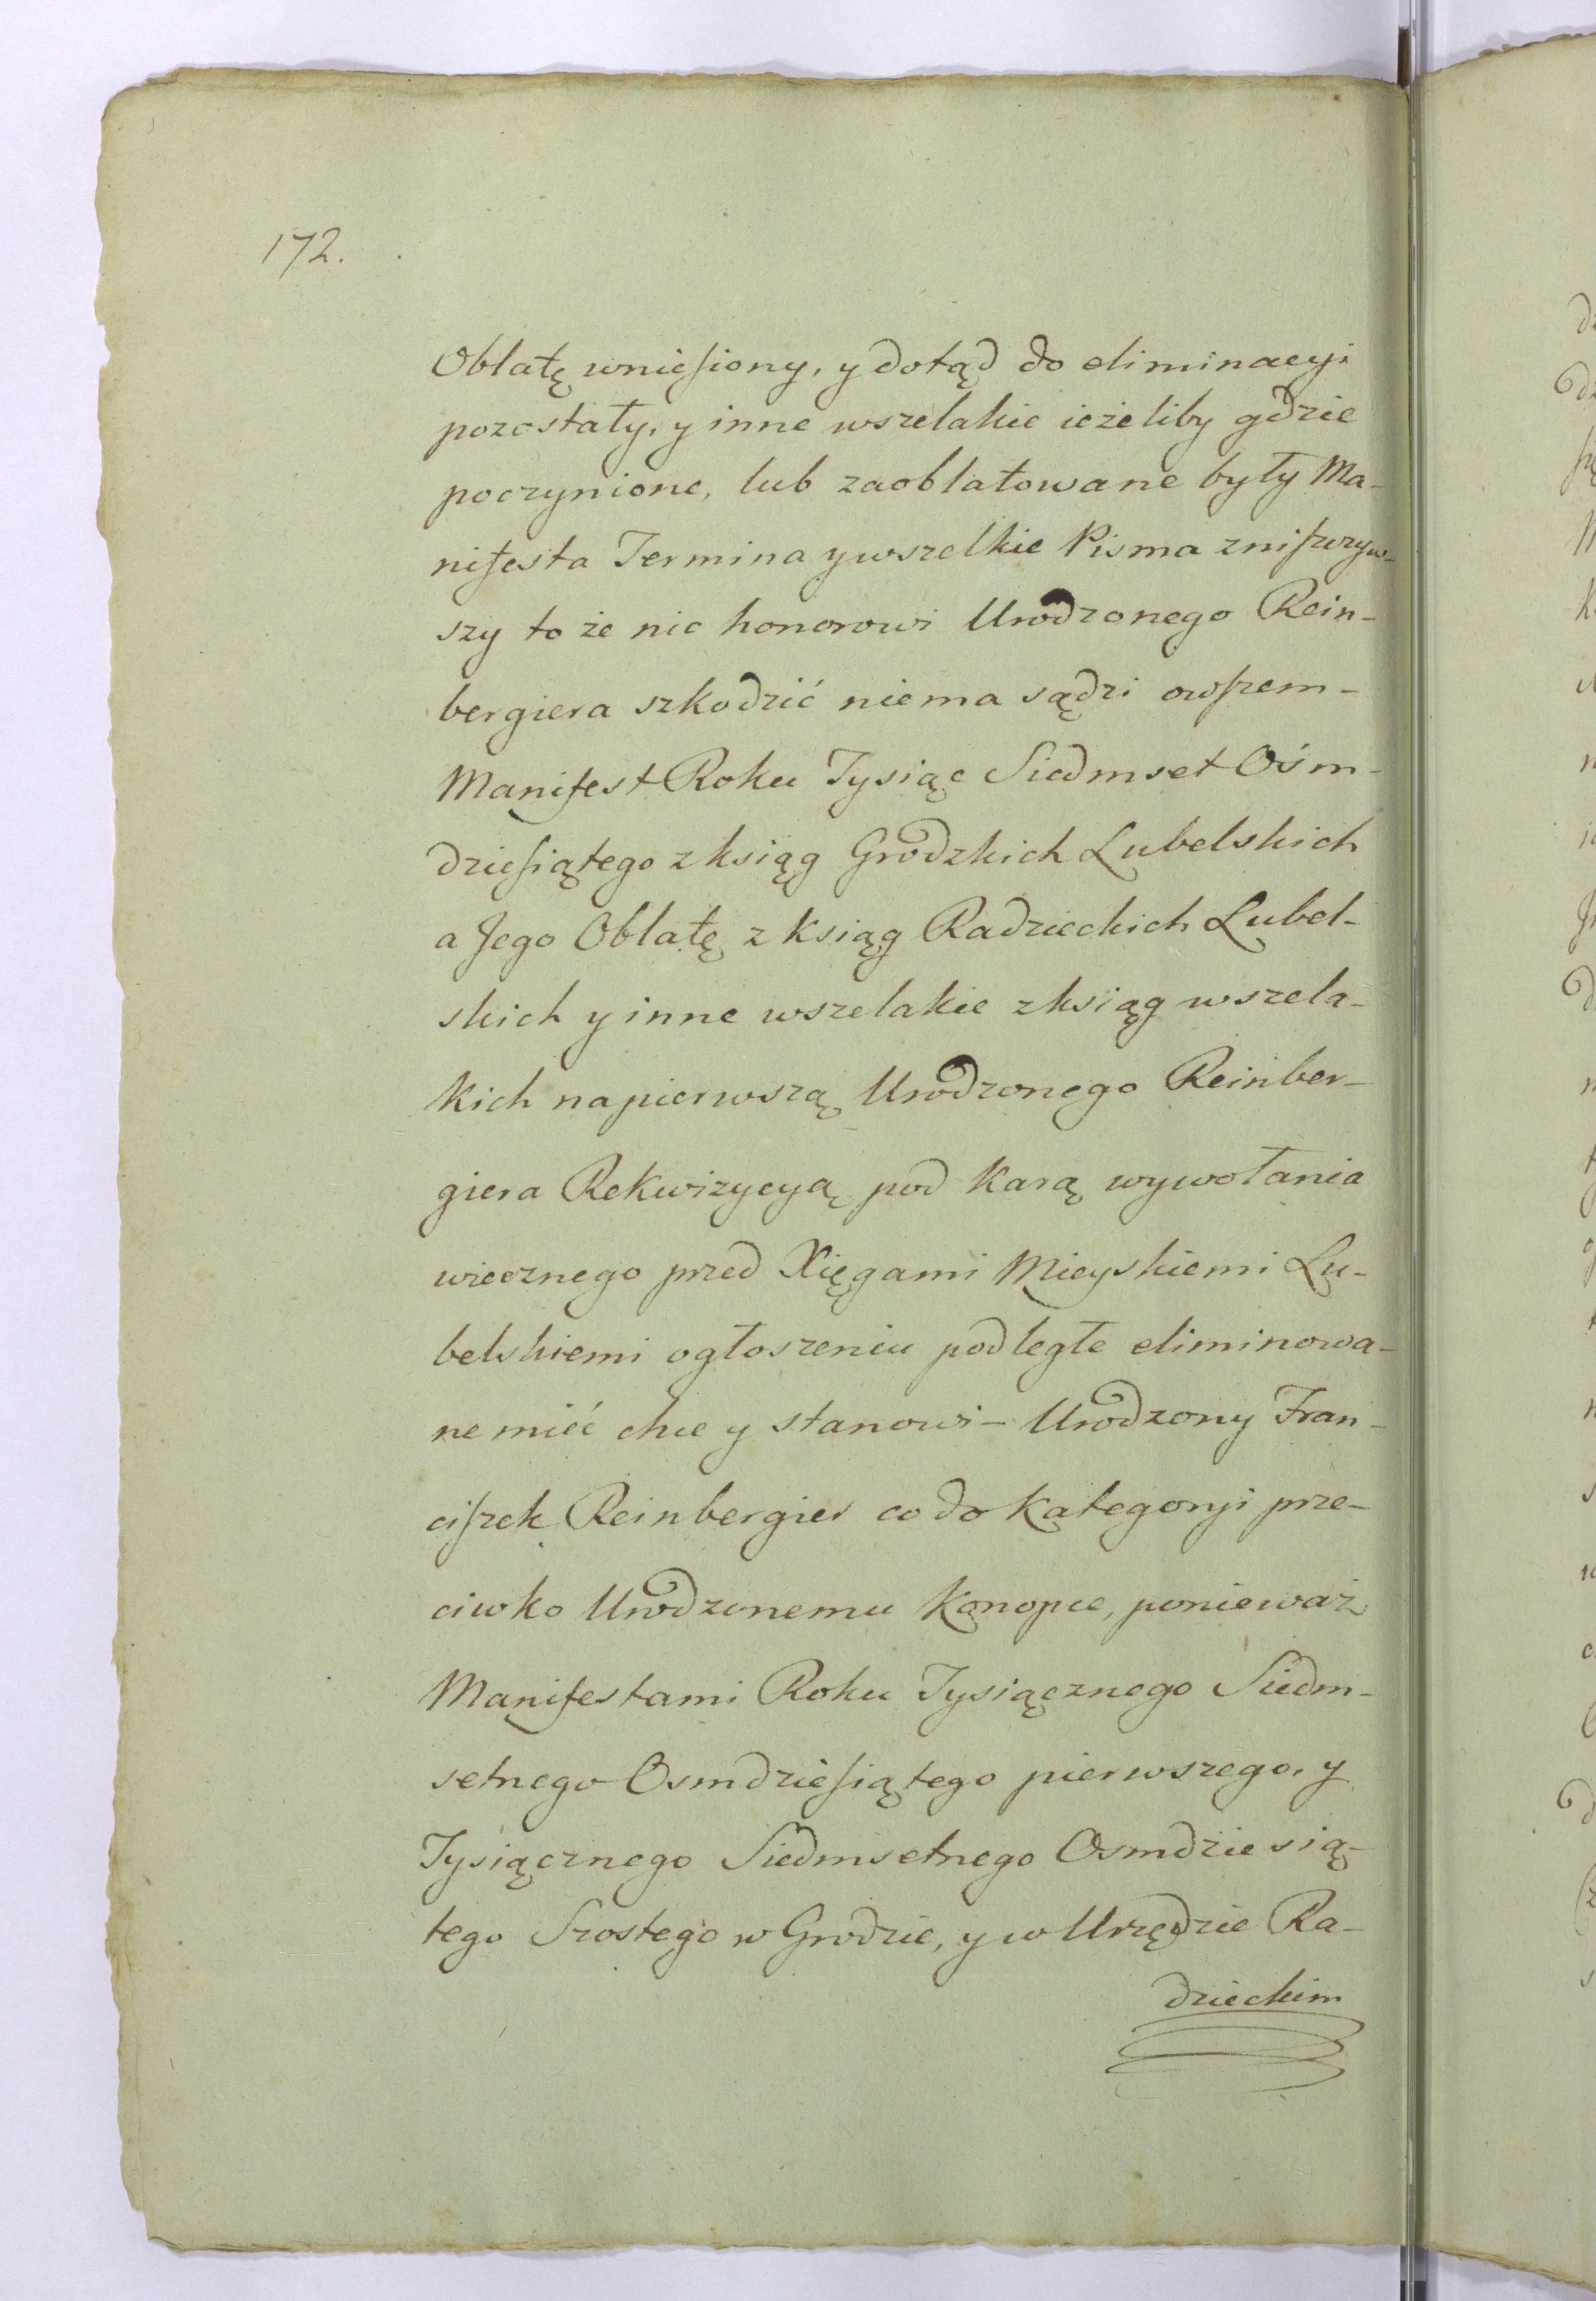 172.
Oblatę wnieſiony, y dotąd do eliminacyi
pozostały, y inne wszelakie ieżeliby gdzie
poczynione, lub zaoblatowane były Ma-
nifesta Termina y wszelkie Pisma zniſzczyw-
szy to że nic honorowi Urodzonego Rein-
bergiera szkodzić niema sądzi owſzem-
Manifest Roku Tysiąc Siedmset Ośm-
dzieſiątego z ksiąg Grodzkich Lubelskich
a Jego Oblatę z ksiąg Radzieckich Lubel-
skich y inne wszelakie z ksiąg wszela-
kich na pierwszą Urodzonego Reinber-
giera Rekwizycyą pod karą wywołania
wiecznego przed Xięgami Mieyskiemi Lu-
belskiemi ogłoszeniu podległe eliminowa-
ne mieć chce y stanowi- Urodzony Fran-
ciſzek Reinbergier co do kategoryi prze-
ciwko Urodzonemu Konopce, ponieważ
Manifestami Roku Tysiącznego Siedm-
setnego Osmdzieſiątego pierwszego, y
Tysiącznego Siedmsetnego Osmdziesią-
tego Szostego w Grodzie, y w Urzędzie Ra-
dzieckim